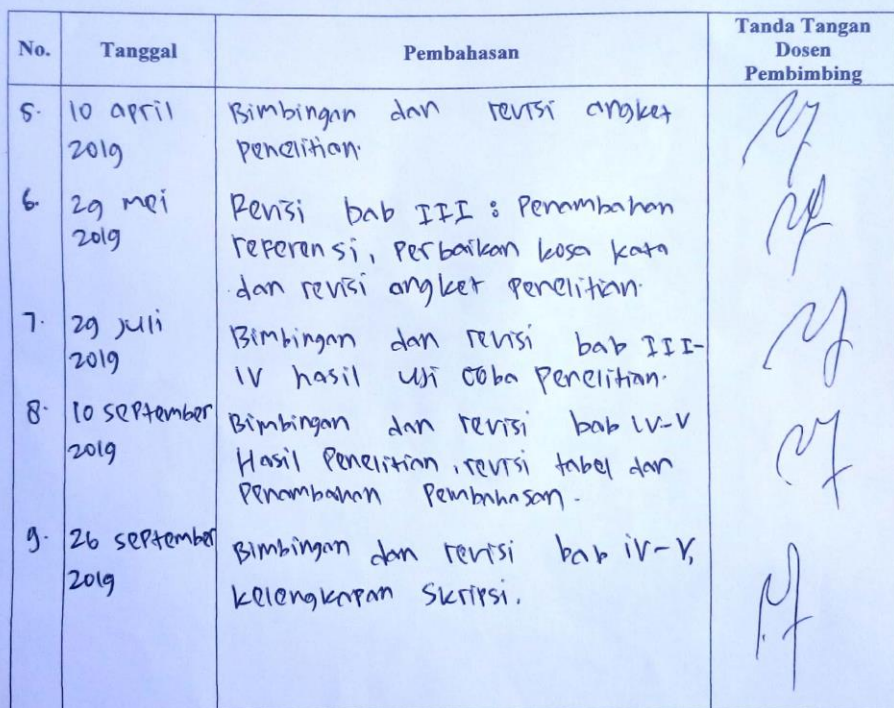 No. Tanggal Pembahasan Tanda Tangan
Dosen
Pembimbing
5. 10 april Bimbingan dan revisi angket
2019 penelitian.
6. 29 mei Revisi bab III : Penambahan
2019 referensi, perbaikan kosa kata
dan revisi angket penelitian.
7. 29 juli Bimbingan dan revisi bab III-
2019 IV hasil uji coba penelitian.
8. 10 september Bimbingan dan revisi bab IV-V
2019 Hasil Penelitian, revisi tabel dan
Penambahan Pembahasan.
9. 26 september Bimbingan dan revisi bab iV-V,
2019 kelengkapan Skripsi.